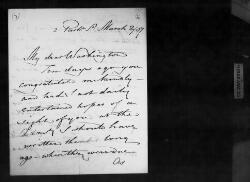 2 Park St. March 2/57
My dear Washington
Ten days ago you
congratulated me kindly -
and had I not daily
entertained hopes of a
sight of you at the
I should have
written then long
ago - when they were due